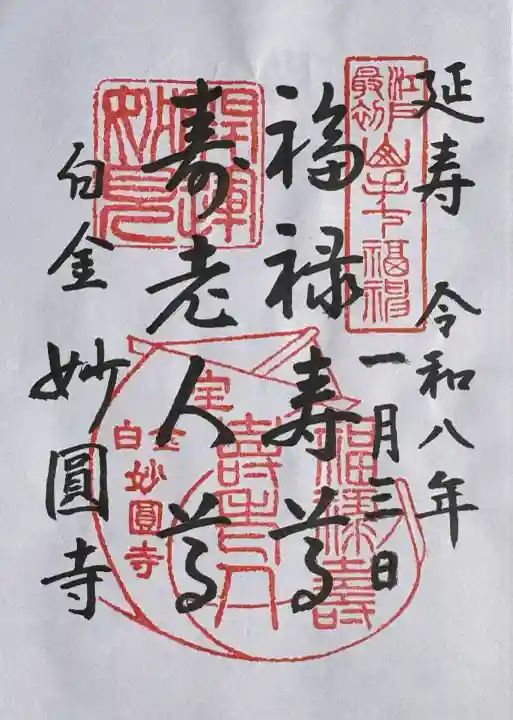 延寿 令和八年
一月三日
福禄寿尊
寿老人尊
白金 妙圓寺
江戸最初
山手七福神
福祿壽
壽老人
白金
妙圓寺